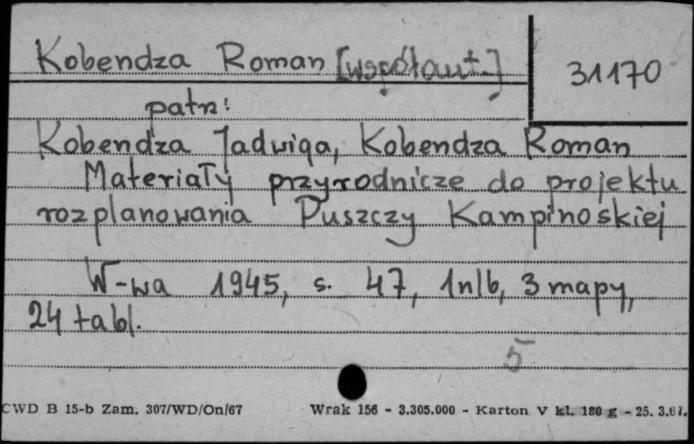 Kobendza Roman [współaut.]
31170
patrz:
Kobendza Jadwiga, Kobendza Roman
Materiały przyrodnicze do projektu
rozplanowania Puszczy Kampinoskiej
W-wa 1945, s. 47, 1nlb, 3 mapy,
24 tabl.
5
CWD B 15-b Zam. 307/WD/On/67 Wrak 156 - 3.305.000 - Karton V kl. 180 g - 25. 3.67.